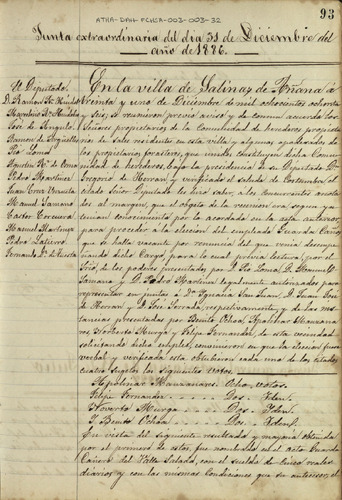 ATHA-DAH-FCHSA-003-003-32
93
Junta extraordinaria del dia 31 de Diciembre del
año de 1886.
Sr. Deputado.
D. Ramon Mz.
José de Angulo.
Ramon de Argüelles
Pio Loma
Pedro Martinez
Juan Cruz
Manuel Samano
Carlos
Manuel Martinez
Pedro
Fernando
En la villa de Salinas de Añana á
treinta y uno de Diciembre de mil ochocientos ochenta
y seis; se reunieron previo aviso y de comun acuerdo los
Señores propietarios de la Comunidad de herederos propieta
rios de Sales residentes en esta villa y algunos apoderados de
los propietarios forasteros, que unidos constituyen dicha Comu
nidad de herederos, bajo la presidencia de su Deputado D.
Gregorio de Herran y verificado el saludo de costumbre di
cho Señor Deputado les hizo saber, a los concurrentes anota
dos al margen, que el objeto de la reunion era segun ya
tenian conocimiento por lo acordado en la acta anterior,
para proceder a la eleccion del empleado Guarda Caños
que se halla vacante por renuncia del que venia desempe
ñando dicho Cargo, para lo cual previa lectura, por el
Srio, de los poderes presentados por D. Pio Loma, D. Manuel
Samano y D. Pedro Martinez legalmente autorizados para
representar en juntas á D. Ignacio San Juan, D. Juan José
de Herran y D. respectivamente, y de las ins
tancias presentadas por Benito Ochoa, Apolinar Manzana
res, Norberto Murga y Felipe Fernandez, de esta vecindad
solicitando dicho empleo, convinieron en que la eleccion fuera
verbal y verificada esta obtubieron cada uno de los citados
cuatro sugetos los siguientes votos.
Apolinar Manzanares. Ocho votos.
Felipe Fernandez - Dos - Idem.
Norverto Murga - Dos - Idem.
Y Benito Ochoa - Dos - Idem.
En vista del siguiente resultado y mayoria obtenida
por el primero de estos, fue nombrado en el acto Guarda
Cañero del Valle Salado, con el sueldo de cinco reales
diarios y con las mismas condiciones que su anterior, el